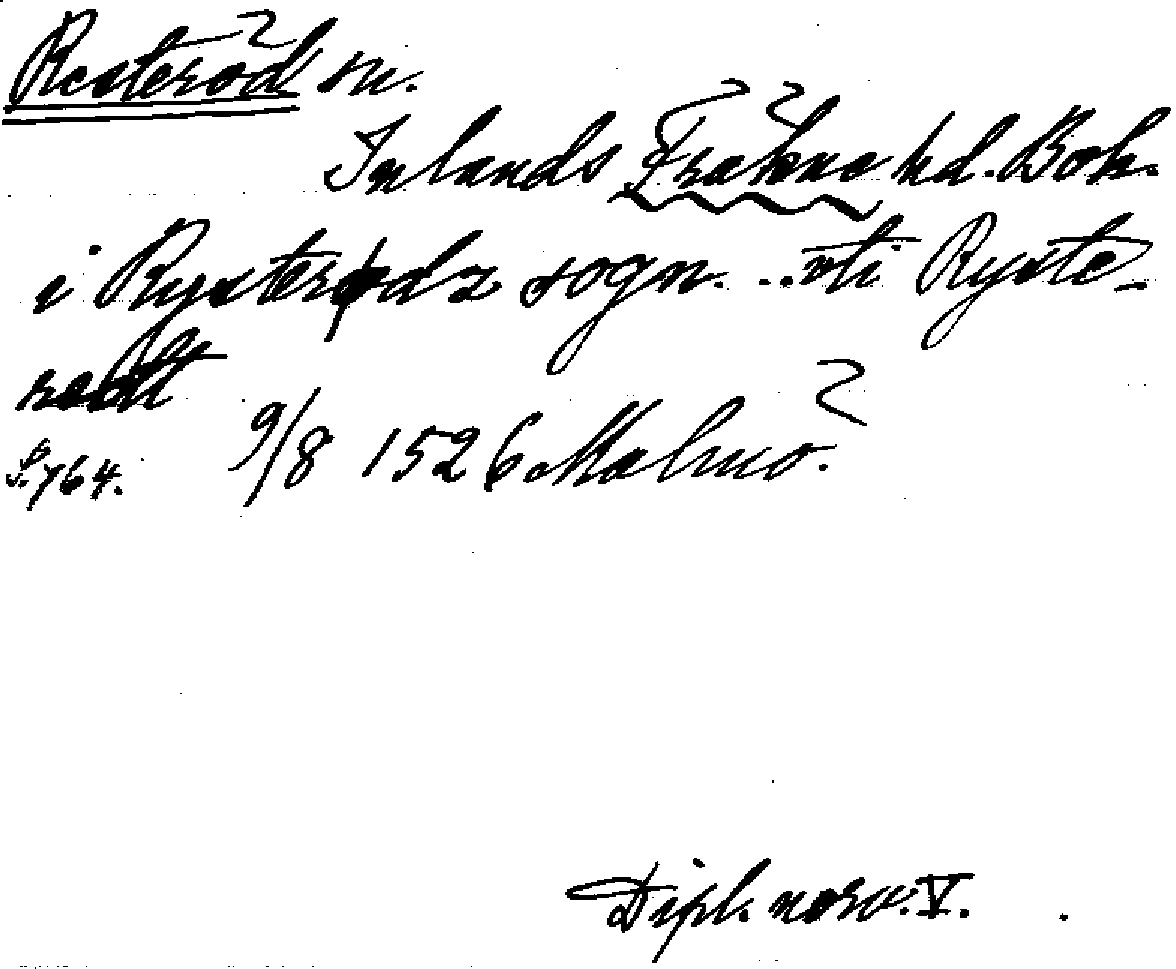 Resteröd sn.
Inlands Fräkne hd. Boh.
i Rysterødz sogn. ... vti Ryste-
rødt
S. 764. 9/8 1526 Malmö.
Dipl. norv. V.